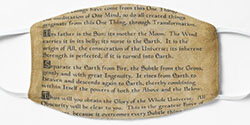 have come from this One Thing,
meditation of One Mind, so do all created things
originate from this One Thing, through Transformation.
Its father is the Sun; its mother the Moon. The Wind
carries it in its belly; its nurse is the Earth. It is the
origin of All, the consecration of the Universe; its inherent
Strength is perfected, if it is turned into Earth.
Separate the Earth from Fire, the Subtle from the Gross,
gently and with great Ingenuity. It rises from Earth to
Heaven and descends again to Earth, thereby combining
within Itself the powers of both the Above and the Below.
Thus will you obtain the Glory of the Whole Universe. All
Obscurity will be clear to you. This is the greatest Force of
because it overcomes every Subtle